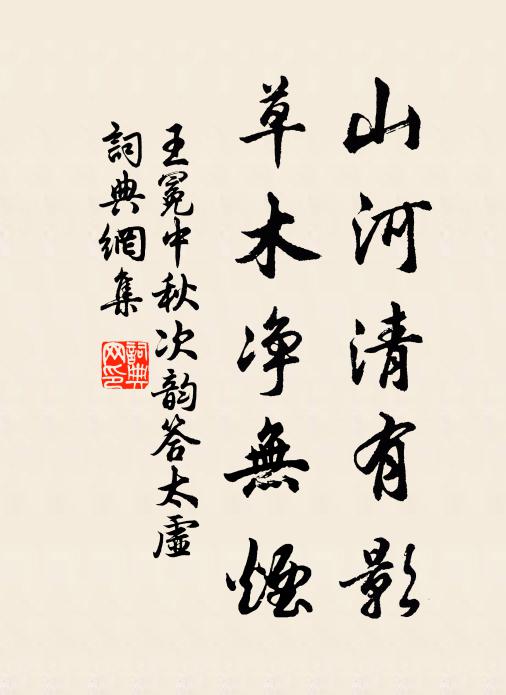 山河清有影
草木净無煙
王冕中秋次韵答太虛
詞典網集
詞典網印